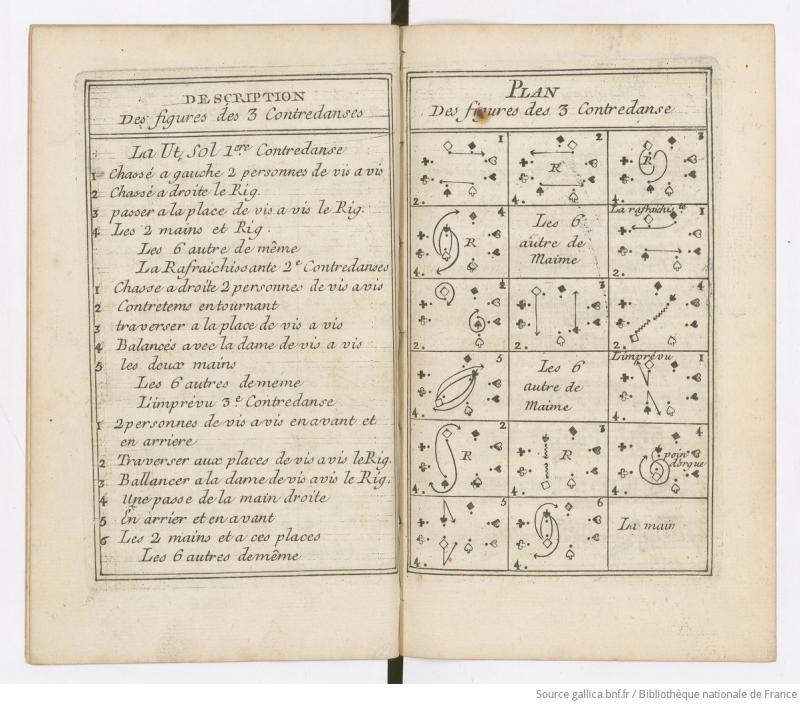 DESCRIPTION
Des figures des 3 Contredanses
La Ut, Sol 1ere Contredanse
1 Chassé a gauche 2 personnes de vis a vis
2 Chassé a droite le Rig.
3 passer a la place de vis a vis le Rig.
4 Les 2 mains et Rig.
Les 6 autre de même
La Rafraichissante 2e Contredanses
1 Chasse a droite 2 personnes de vis a vis
2 Contretems en tournant
3 traverser a la place de vis a vis
4 Balancés avec la dame de vis a vis
5 les deux mains
Les 6 autres de meme
L'imprévu 3e Contredanse
1 2 personnes de vis a vis en avant et
en arriere
2 Traverser aux places de vis a vis le Rig.
3 Ballancer a la dame de vis a vis le Rig.
4 Une passe de la main droite
5 En arrier et en avant
6 Les 2 mains et a ces places
Les 6 autres de même
PLAN
Des figures des 3 Contredanse
1
2.
2
R
4.
3
R
4.
4
R
4.
Les 6
autre de
Maime
La rafraichiste
1
2.
2
2.
3
2.
4
4.
5
4.
Les 6
autre de
Maime
L'imprévu
1
4.
2
R
4.
3
R
4.
4
poin
d'orgue
4.
5
4.
6
4.
La main
Source gallica.bnf.fr / Bibliothèque nationale de France